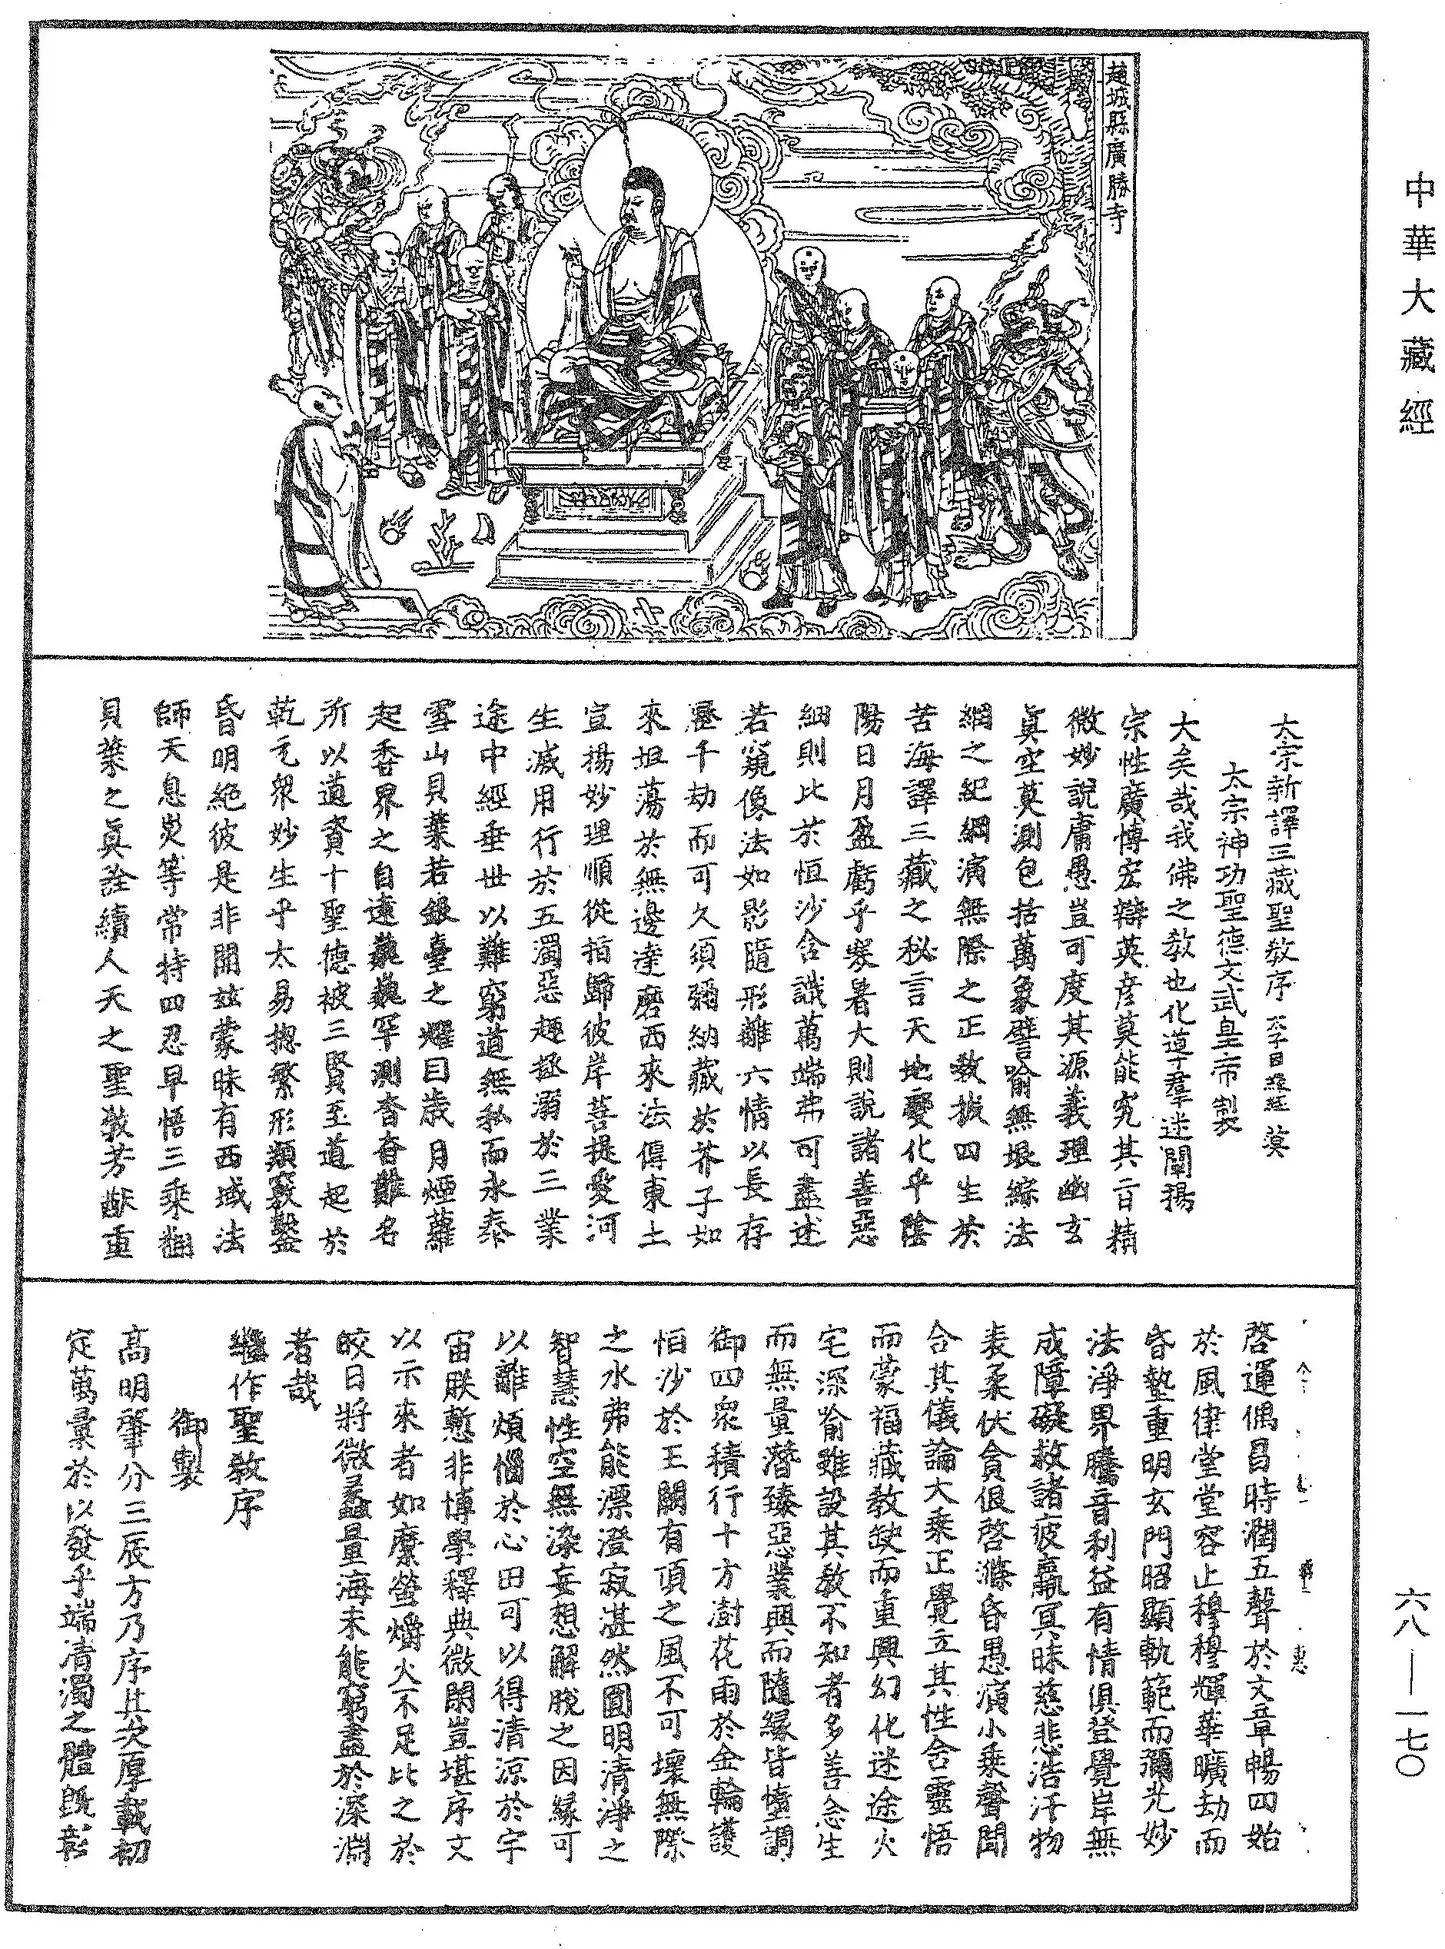 中華大藏經
趙城縣廣勝寺
太宗新譯三藏聖教序
太宗神功聖德文武皇帝製
大矣哉我佛之教也化導群迷闡揚
宗性廣博宏辯英彦莫能究其旨精
微妙說庸愚豈可度其源義理幽玄
真空莫測包括萬象譬喻無垠綜法
網之紀綱演無際之正教拔四生於
苦海譯三藏之秘言天地變化乎陰
陽日月盈虧乎寒暑大則說諸善惡
細則比於恒沙含識萬端弗可盡述
若窺像法如影隨形離六情以長存
歷千劫而可久須彌納藏於芥子如
來坦蕩於無邊達磨西來法傳東土
宣揚妙理順從指歸彼岸菩提愛河
生滅用行於五濁惡趣拯溺於三業
途中經垂世以難窮道無私而永泰
雪山貝葉若銀臺之耀日歲月煙蘿
起香界之自遠巍巍罕測杳杳難名
所以道資十聖德被三賢至道起於
乾元衆妙生乎太易揔繁形類竅鑿
昏明絶彼是非開兹蒙昧有西域法
師天息灾等常持四忍早悟三乘翻
貝葉之真詮續人天之聖教芳猷重
啓運偶昌時潤五聲於文章暢四始
於風律堂堂容止穆穆輝華曠劫而
昏墊重明玄門昭顯軌範而彌光妙
法淨界騰音利益有情俱登覺岸無
成障礙救諸疲羸冥昧慈悲浩汗物
表柔伏貪佷啓滌昏愚演小乘聲聞
合其儀論大乘正覺立其性含靈悟
而蒙福藏教缺而重興幻化迷途火
宅深喻雖設其教不知者多善念生
而無量潛臻惡業興而隨緣皆墮調
御四衆積行十方澍花雨於金輪護
恒沙於王闕有頂之風不可壞無際
之水弗能漂澄寂湛然圓明清淨之
智慧性空無染妄想解脫之因緣可
以離煩惱於心田可以得清涼於宇
宙朕慙非博學釋典微閑豈堪序文
以示來者如縻螢爝火不足比之於
皎日將微蠡量海未能窮盡於深淵
者哉
繼作聖教序
御製
高明肇分三辰方乃序其尖厚載初
定萬彙於以發乎端清濁之體旣彰
六八——一七〇